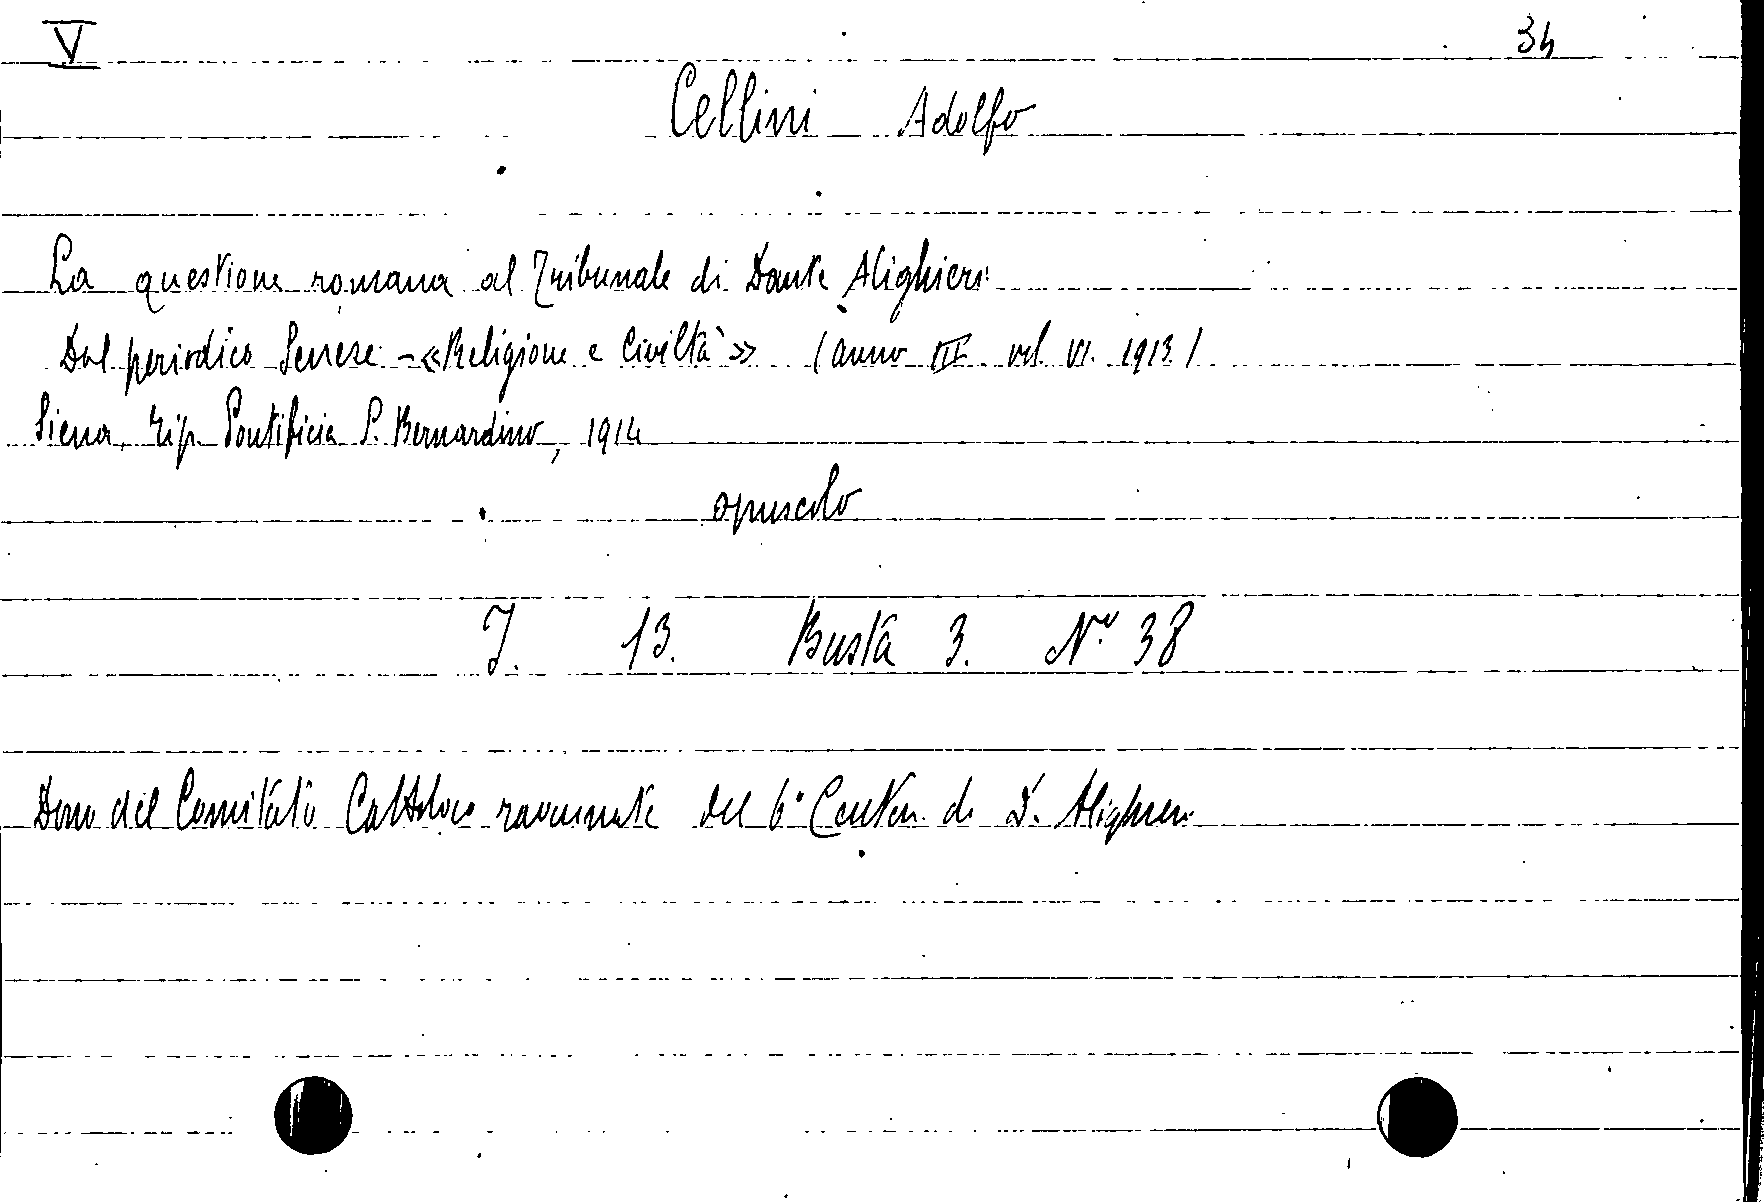 V 34
Cellini Adolfo
La questione romana al Tribunale di Dante Alighieri
Dal periodico Senese - «Religione e Civiltà» (anno III vol. VI. 1913)
Siena, Tip. Pontificia S. Bernardino, 1914
opuscolo
J. 13. Busta 3. N.º 38
Dono del Comitato Cattolico ravennate del 6° Centen. di D. Alighieri